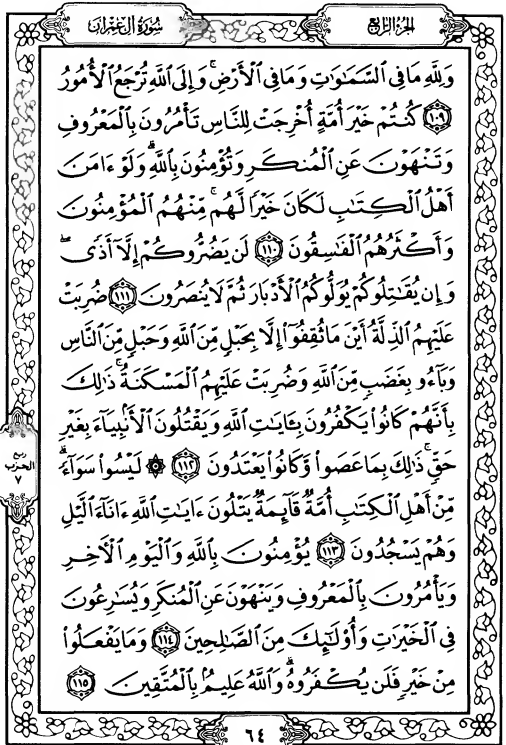 الجزء الرابع
سورة آل عمران
وَلِلَّهِ مَا فِي السَّمَٰوَٰتِ وَمَا فِي الْأَرْضِ ۚ وَإِلَى اللَّهِ تُرْجَعُ الْأُمُورُ
١٠٩ كُنتُمْ خَيْرَ أُمَّةٍ أُخْرِجَتْ لِلنَّاسِ تَأْمُرُونَ بِالْمَعْرُوفِ
وَتَنْهَوْنَ عَنِ الْمُنكَرِ وَتُؤْمِنُونَ بِاللَّهِ ۗ وَلَوْ ءَامَنَ
أَهْلُ الْكِتَٰبِ لَكَانَ خَيْرًا لَّهُم ۚ مِّنْهُمُ الْمُؤْمِنُونَ
وَأَكْثَرُهُمُ الْفَٰسِقُونَ ١١٠ لَن يَضُرُّوكُمْ إِلَّا أَذًى ۖ
وَإِن يُقَٰتِلُوكُمْ يُوَلُّوكُمُ الْأَدْبَارَ ثُمَّ لَا يُنصَرُونَ ١١١ ضُرِبَتْ
عَلَيْهِمُ الذِّلَّةُ أَيْنَ مَا ثُقِفُوٓا۟ إِلَّا بِحَبْلٍ مِّنَ اللَّهِ وَحَبْلٍ مِّنَ النَّاسِ
وَبَآءُو بِغَضَبٍ مِّنَ اللَّهِ وَضُرِبَتْ عَلَيْهِمُ الْمَسْكَنَةُ ۚ ذَٰلِكَ
بِأَنَّهُمْ كَانُوا۟ يَكْفُرُونَ بِـَٔايَٰتِ اللَّهِ وَيَقْتُلُونَ الْأَنۢبِيَآءَ بِغَيْرِ
حَقٍّ ۚ ذَٰلِكَ بِمَا عَصَوا۟ وَّكَانُوا۟ يَعْتَدُونَ ١١٢ ۞ لَيْسُوا۟ سَوَآءً ۗ
مِّنْ أَهْلِ الْكِتَٰبِ أُمَّةٌ قَآئِمَةٌ يَتْلُونَ ءَايَٰتِ اللَّهِ ءَانَآءَ الَّيْلِ
وَهُمْ يَسْجُدُونَ ١١٣ يُؤْمِنُونَ بِاللَّهِ وَالْيَوْمِ الْءَاخِرِ
وَيَأْمُرُونَ بِالْمَعْرُوفِ وَيَنْهَوْنَ عَنِ الْمُنكَرِ وَيُسَٰرِعُونَ
فِي الْخَيْرَٰتِ وَأُو۟لَٰٓئِكَ مِنَ الصَّٰلِحِينَ ١١٤ وَمَا يَفْعَلُوا۟
مِنْ خَيْرٍ فَلَن يُكْفَرُوهُ ۗ وَاللَّهُ عَلِيمٌۢ بِالْمُتَّقِينَ ١١٥
ربع
الحزب
٧
٦٤